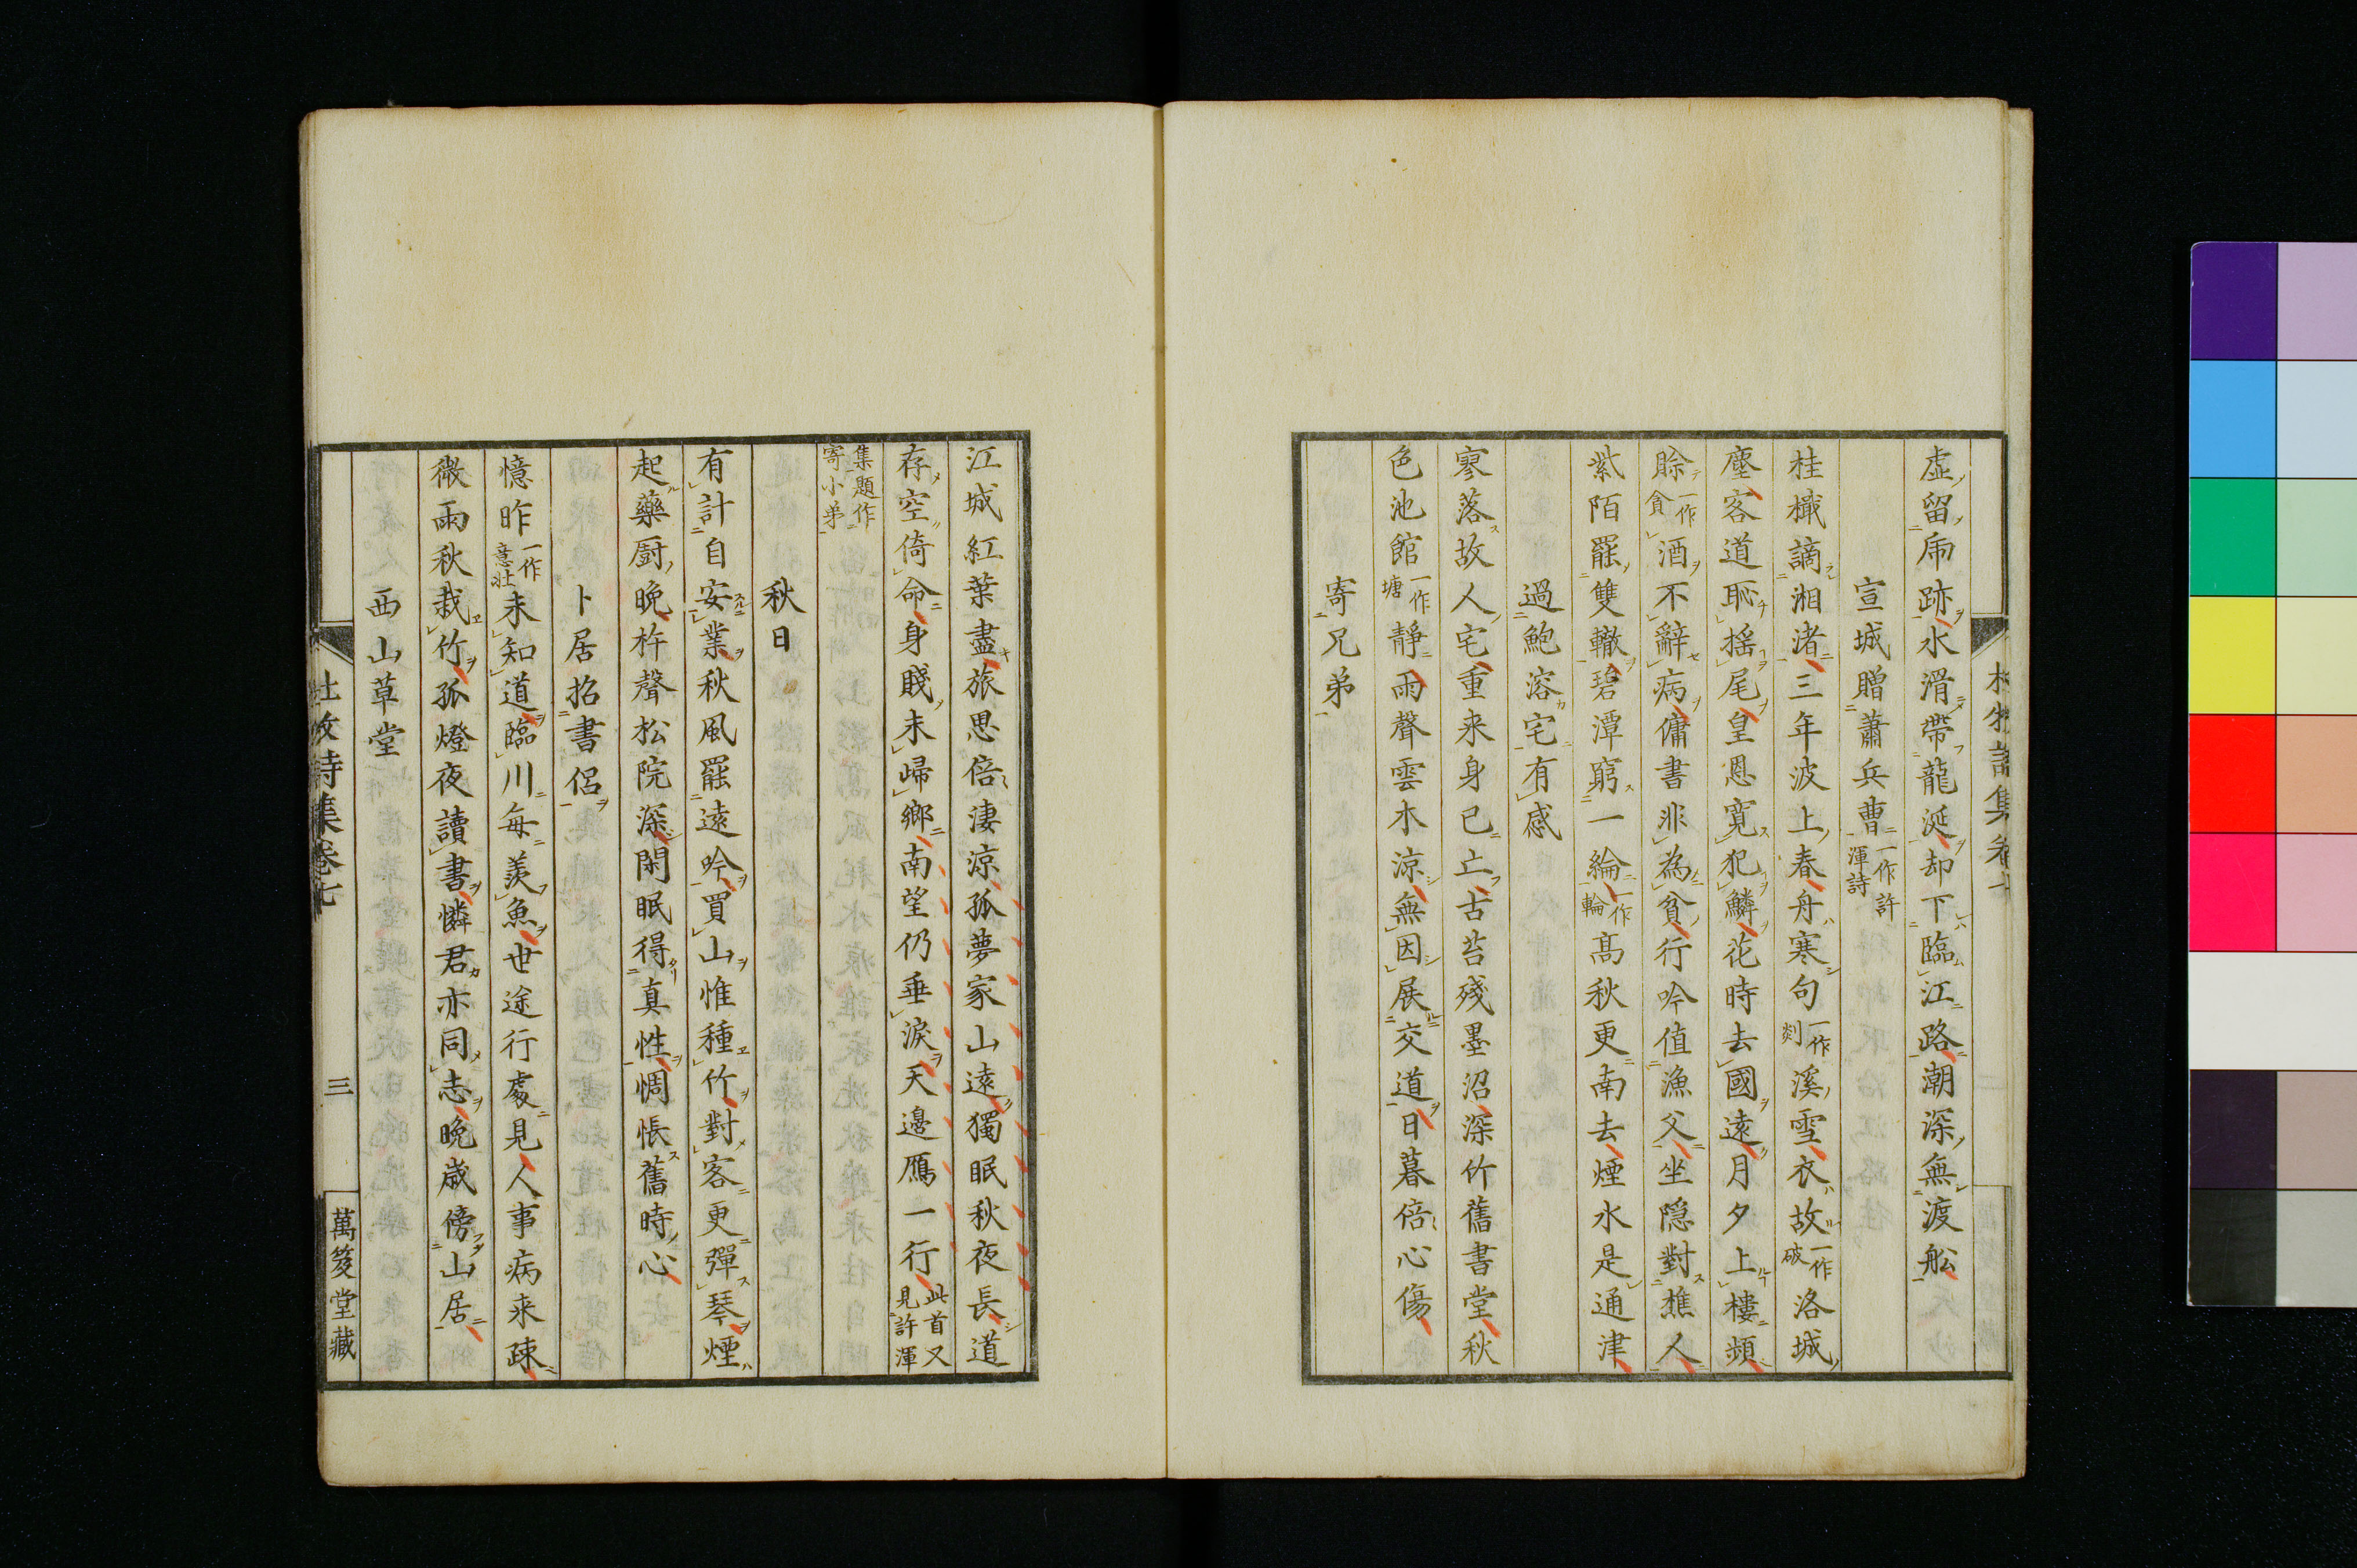 虛留虎跡水滑帶龍涎却下臨江路潮深無渡船
宣城贈蕭兵曹一作許渾詩
桂檝謫湘渚三年波上春舟寒句一作剡溪雪衣故一作破洛城
塵客道恥搖尾皇恩寬犯鱗花時去國遠月夕上樓頻
賒一作貪酒不辭病傭書非為貧行吟值漁父坐隱對樵人
紫陌罷雙轍碧潭窮一綸一作輪高秋更南去煙水是通津
過鮑溶宅有感
寥落故人宅重来身已亡古苔殘墨沼深竹舊書堂秋
色池館一作塘靜雨聲雲木涼無因展交道日暮倍心傷
寄兄弟
江城紅葉盡旅思倍淒涼孤夢家山遠獨眠秋夜長道
存空倚命身賤未歸鄉南望仍垂淚天邊鴈一行此首又見許渾
集題作寄小弟
秋日
有計自安業秋風罷遠吟買山惟種竹對客更彈琴煙
起藥厨晚杵聲松院深閑眠得真性惆悵舊時心
卜居招書侶
憶昨一作意壯未知道臨川每羨魚世途行處見人事病来疎
微雨秋栽竹孤燈夜讀書憐君亦同志晚歳傍山居
西山草堂
杜牧詩集卷七
三
萬笈堂藏